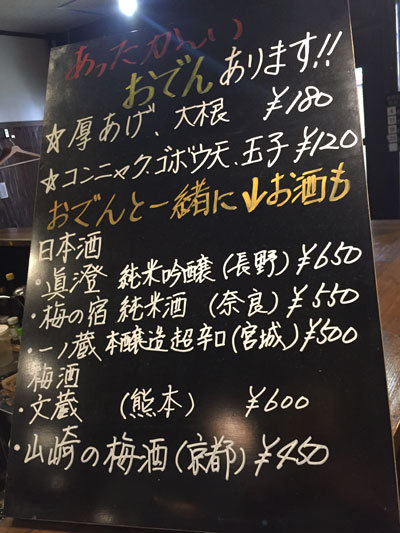 あったかーい
おでんあります!!
☆厚あげ、大根 ¥180
☆コンニャク、ゴボウ天、玉子 ¥120
おでんと一緒に↓お酒も
日本酒
・眞澄 純米吟醸(長野)¥650
・梅の宿 純米酒 (奈良)¥550
・一ノ蔵 本醸造超辛口(宮城)¥500
梅酒
・文蔵 (熊本) ¥600
・山崎の梅酒(京都)¥450